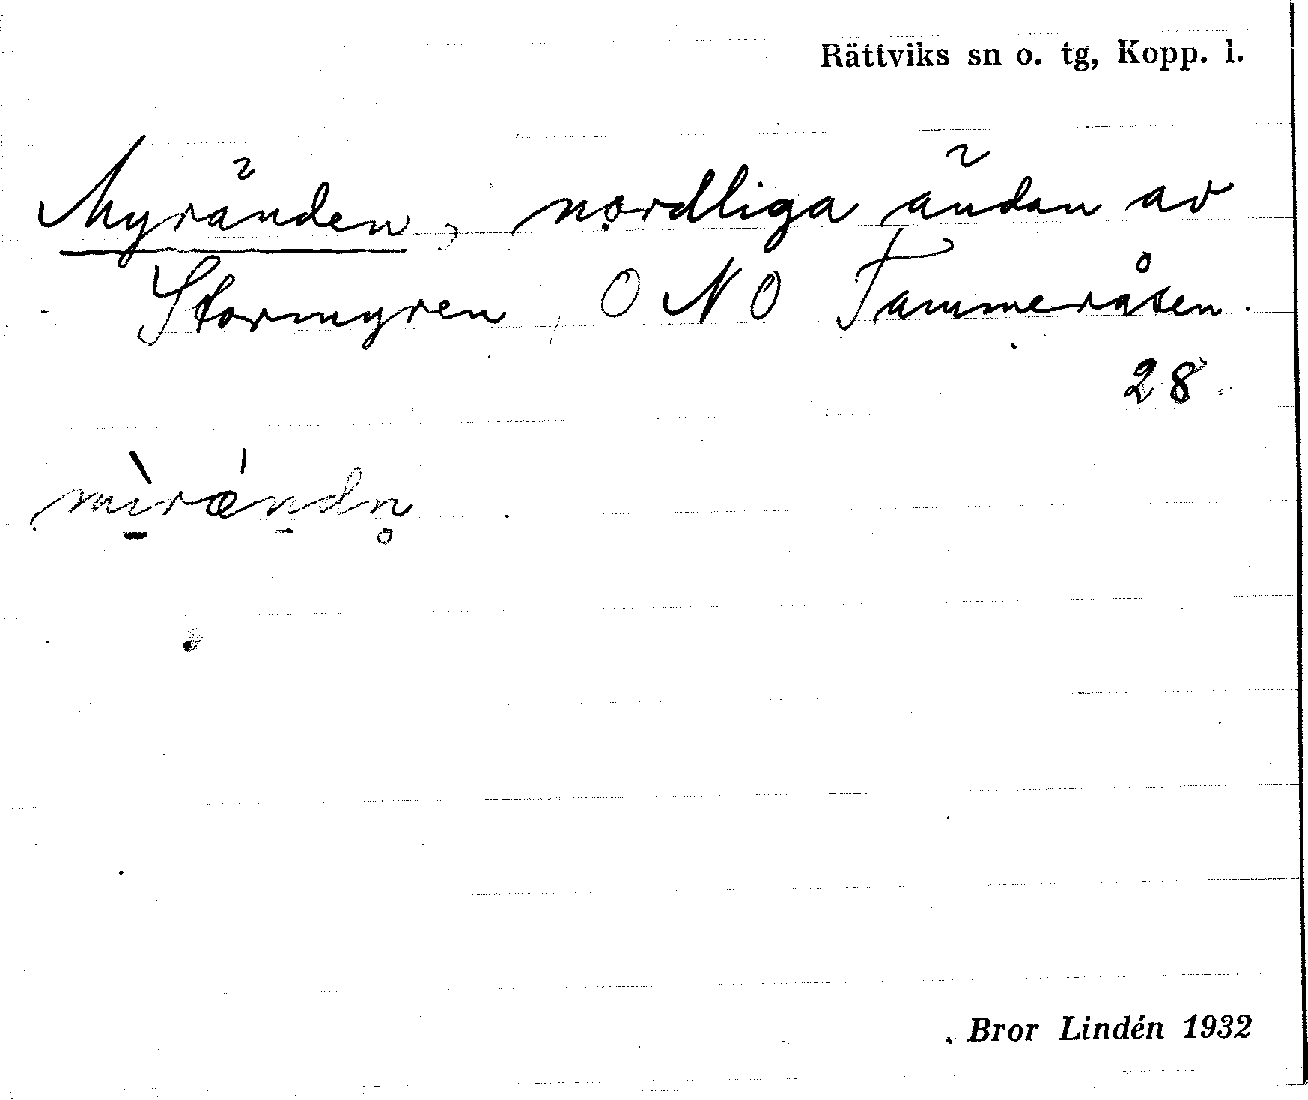 Rättviks sn o. tg, Kopp. l.
Myränden, nordliga ändan av
Stormyren ONO Fammeråsen.
28.
mìrǽndn̥
Bror Lindén 1932